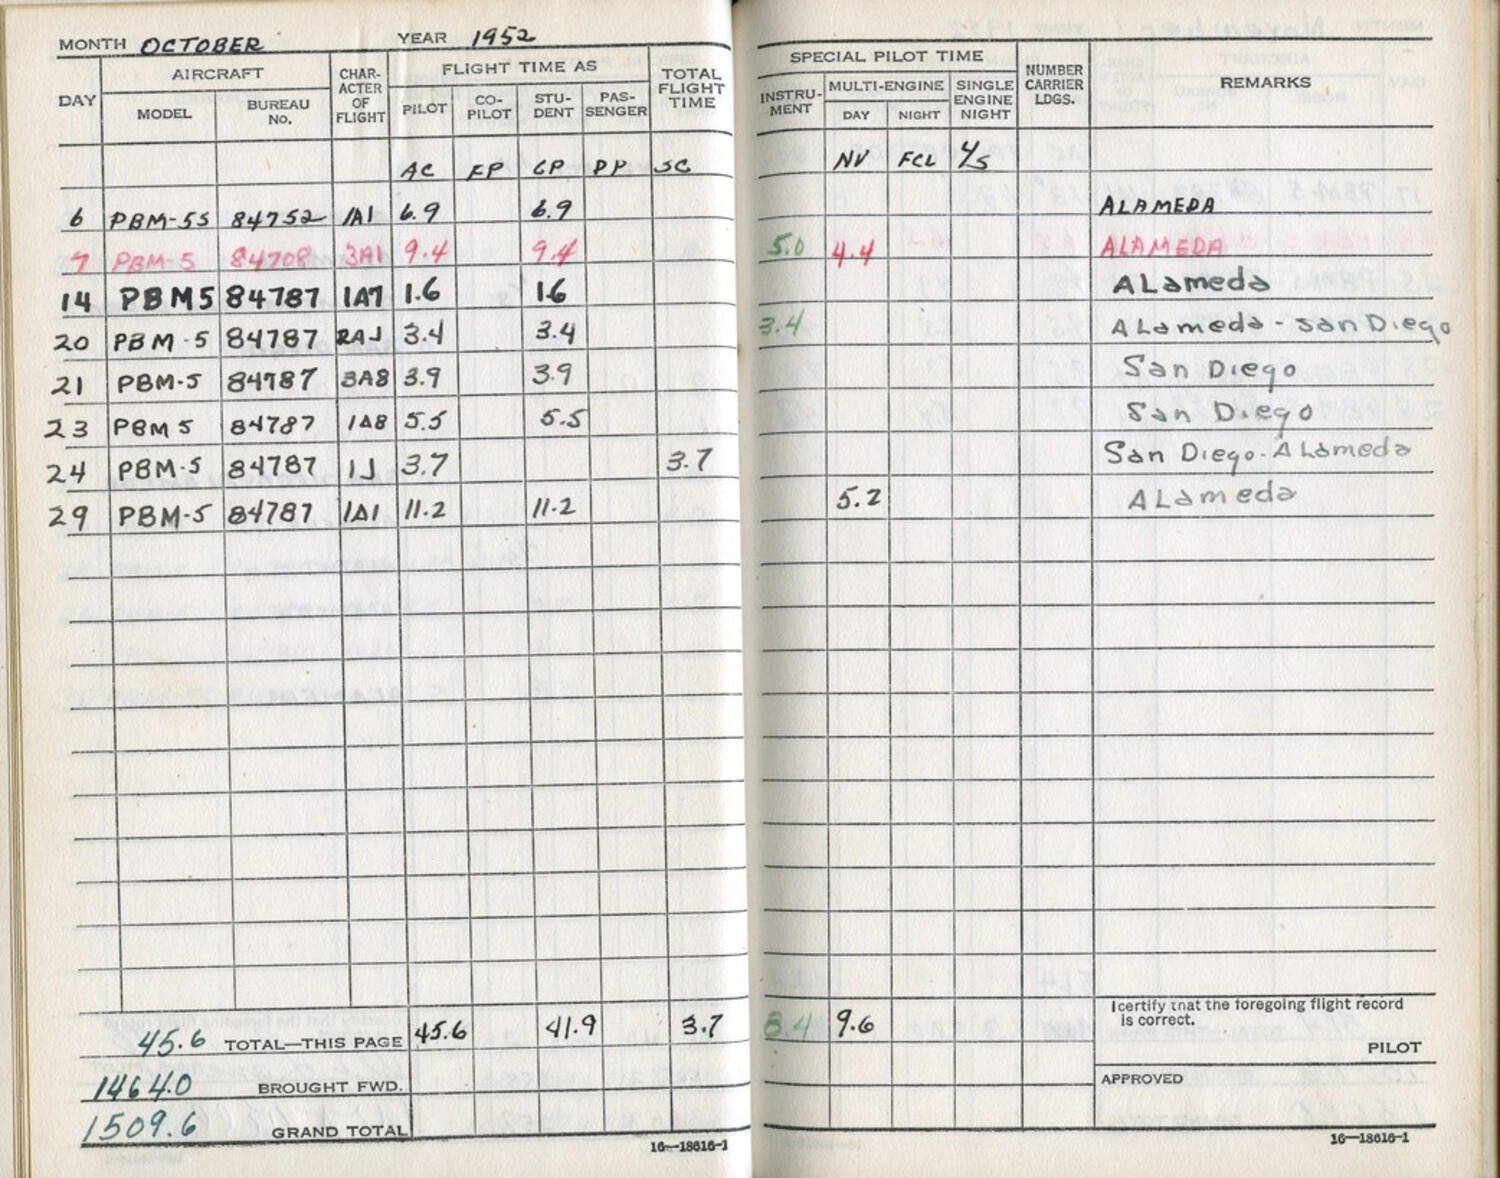 MONTH OCTOBER YEAR 1952
DAY AIRCRAFT CHAR-ACTER OF FLIGHT FLIGHT TIME AS TOTAL FLIGHT TIME SPECIAL PILOT TIME NUMBER CARRIER LDGS. REMARKS
MODEL BUREAU No. PILOT CO-PILOT STU-DENT PAS-SENGER INSTRU-MENT MULTI-ENGINE SINGLE ENGINE NIGHT
DAY NIGHT
AC FP CP PP SC NV FCL 4/5
6 PBM-5S 84752 1A1 6.9 6.9 ALAMEDA
7 PBM-5 84708 3A1 9.4 9.4 5.0 4.4 ALAMEDA
14 PBM5 84787 1A7 1.6 1.6 ALameda
20 PBM-5 84787 2AJ 3.4 3.4 3.4 ALameda - San Diego
21 PBM-5 84787 3A8 3.9 3.9 San Diego
23 PBM5 84787 1A8 5.5 5.5 San Diego
24 PBM-5 84787 1J 3.7 3.7 San Diego - ALameda
29 PBM-5 84787 1A1 11.2 11.2 5.2 ALameda
I certify that the foregoing flight record is correct.
45.6 TOTAL—THIS PAGE 45.6 41.9 3.7 8.4 9.6
PILOT
1464.0 BROUGHT FWD. APPROVED
1509.6 GRAND TOTAL
16—18616-1 16—18616-1